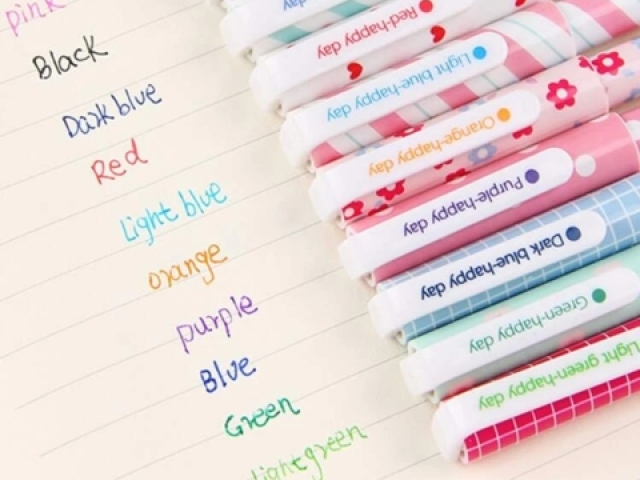 pink
Black
Dark blue
Red
Light blue
orange
purple
Blue
Green
light green
day
Red-happy day
Light blue-happy day
Orange-happy day
Purple-happy day
Dark blue-happy day
Green-happy day
Light green-happy day